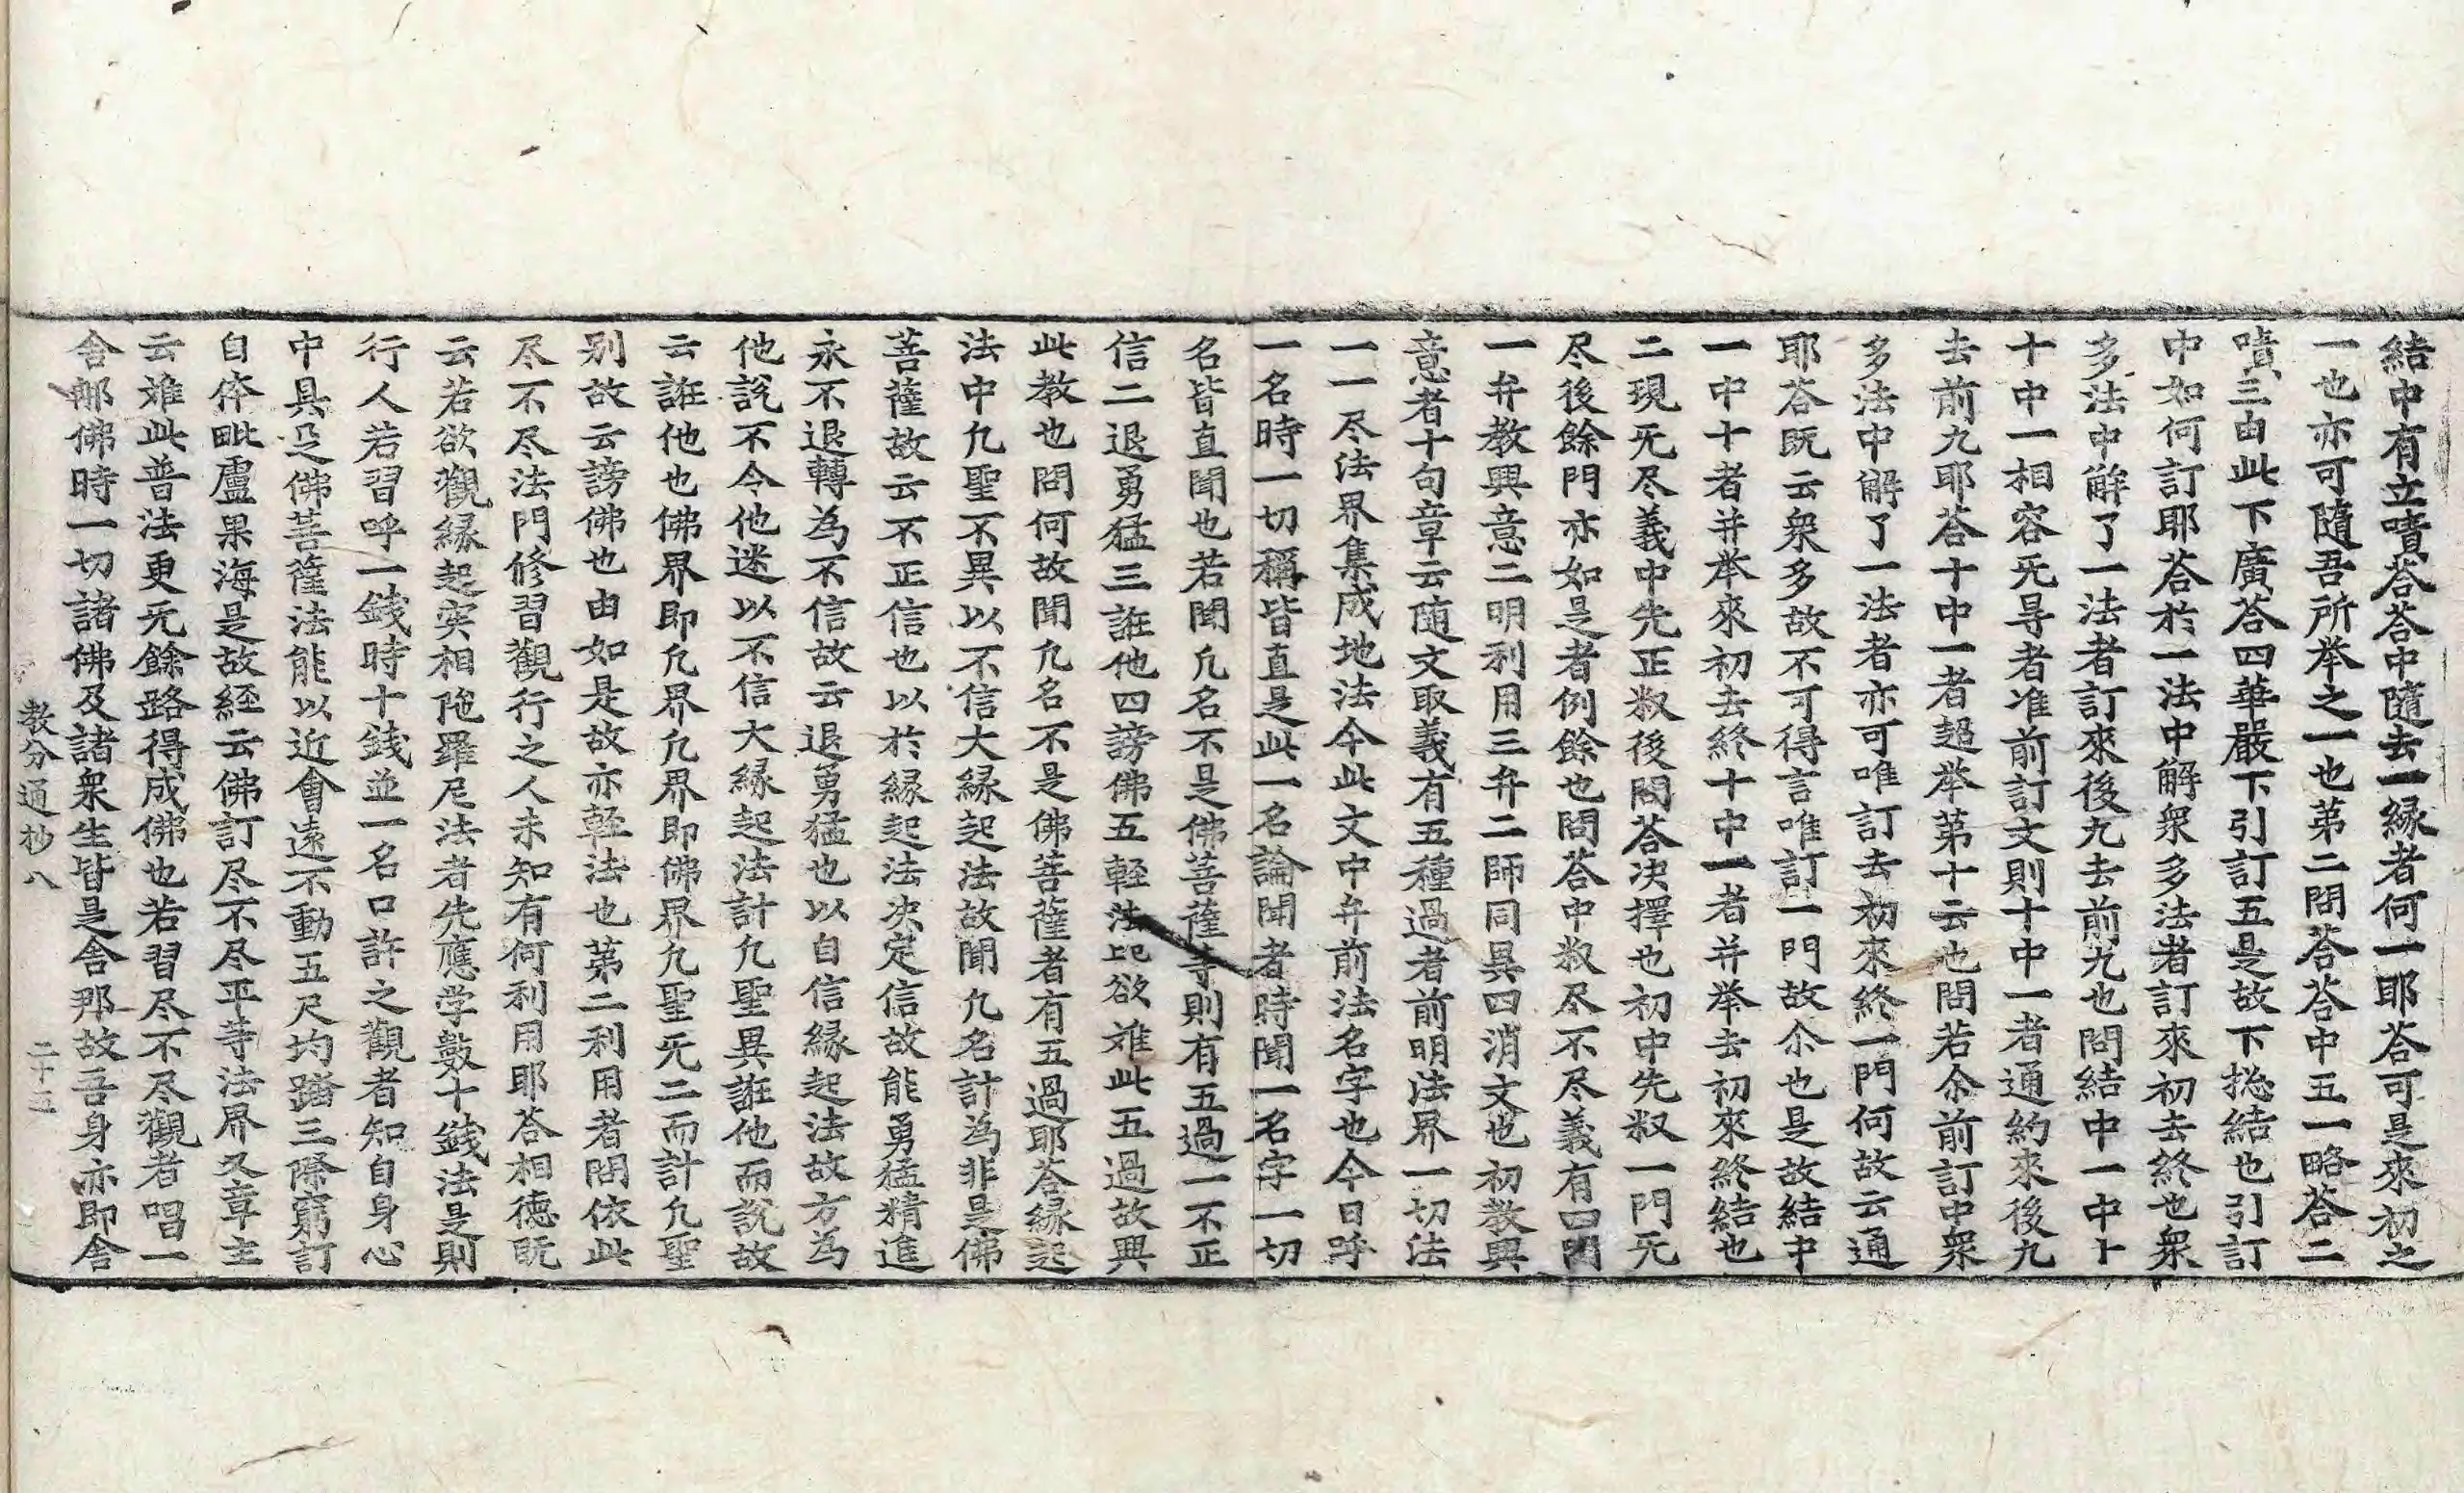 結中有立嘖荅荅中隨去一緣者何一耶荅可是來初之
一也亦可隨吾所举之一也苐二問荅荅中五一略荅二
嘖三由此下廣荅四華嚴下引訂五是故下捴結也引訂
中如何訂耶荅扵一法中解衆多法者訂來初去終也衆
多法中解了一法者訂來後九去前九也問結中一中十
十中一相容旡㝵者准前訂文則十中一者通約來後九
去前九耶荅十中一者超举苐十云也問若尒前訂中衆
多法中解了一法者亦可唯訂去初來終一門何故云通
耶荅旣云衆多故不可得言唯訂一門故尒也是故結中
一中十者并举來初去終十中一者并举去初來終結也
二現旡尽義中先正叙後問荅决擇也初中先叙一門旡
尽後餘門亦如是者例餘也問荅中叙尽不尽義有四門
一弁教興意二明利用三弁二師同異四消文也初教興
意者十句章云随文取義有五種過者前明法界一切法
一一尽法界集成地法今此文中弁前法名字也今日呼
一名時一切稱皆直是此一名論聞者時聞一名字一切
名皆直聞也若聞凢名不是佛菩薩等則有五過一不正
信二退勇猛三誑他四謗佛五輕法比欲难此五過故興
此教也問何故聞凢名不是佛菩薩者有五過耶荅緣起
法中凢聖不異以不信大緣起法故聞凢名計為非是佛
菩薩故云不正信也以扵緣起法决定信故能勇猛精進
永不退轉為不信故云退勇猛也以自信緣起法故方為
他說不令他迷以不信大緣起法計凢聖異誑他而說故
云誑他也佛界即凢界凢界即佛界凢聖旡二而計凢聖
别故云謗佛也由如是故亦輕法也苐二利用者問依此
尽不尽法門修習觀行之人未知有何利用耶荅相德旣
云若欲觀緣起実相陁羅尼法者先應学數十錢法是則
行人若習呼一錢時十錢並一名口許之觀者知自身心
中具足佛菩薩法能以近會遠不動五尺均踏三際窮訂
自体毗盧果海是故経云佛訂尽不尽平等法界又章主
云难此普法更旡餘路得成佛也若習尽不尽觀者唱一
舍那佛時一切諸佛及諸衆生皆是舍那故吾身亦即舍
教分通抄八　二十三